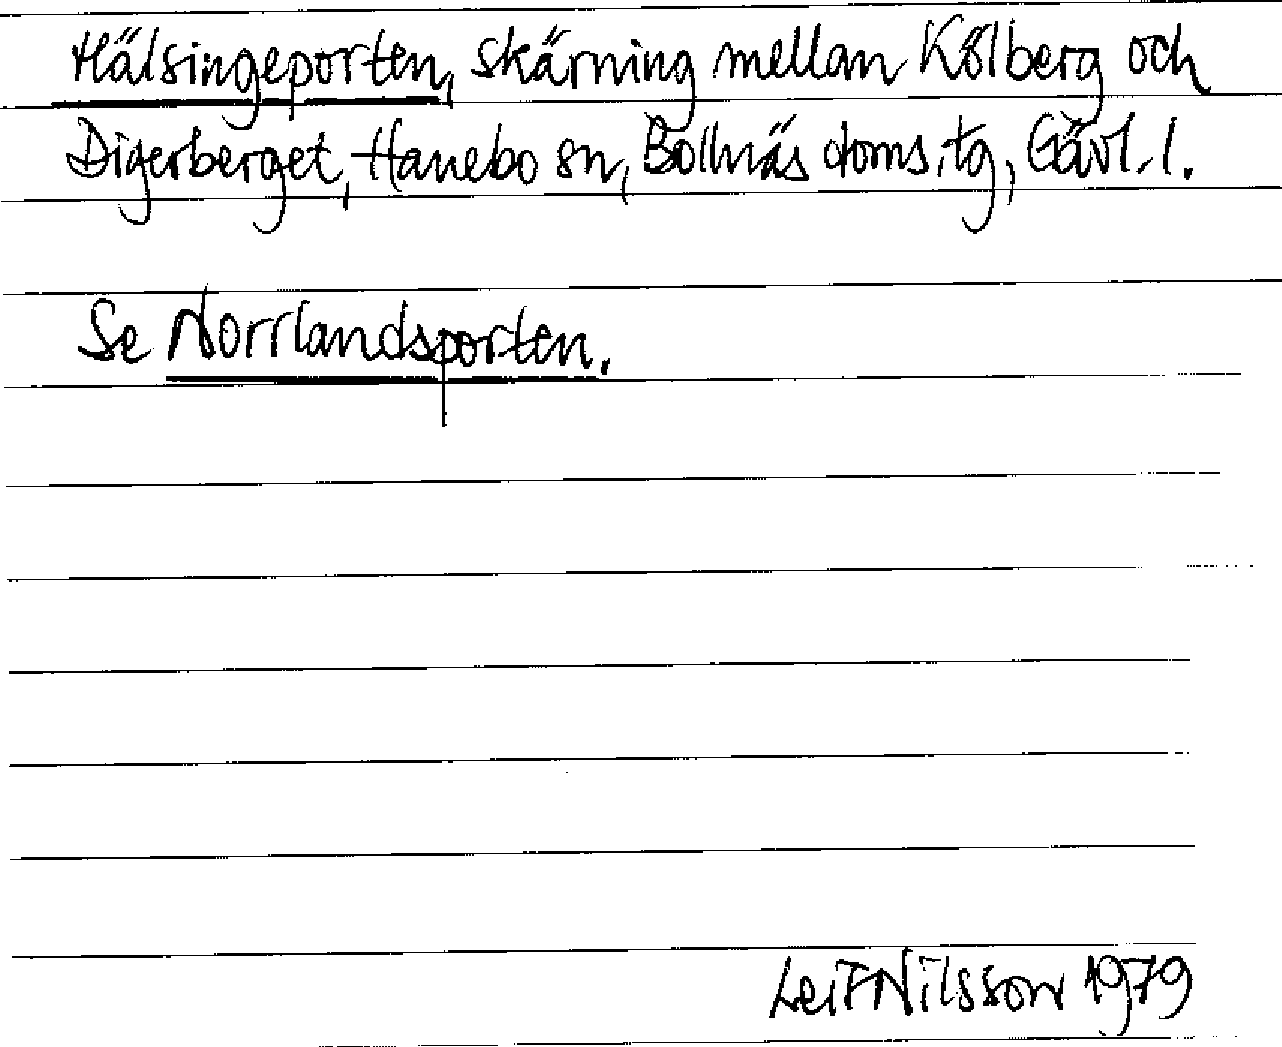 Hälsingeporten, skärning mellan Kölberg och
Digerberget, Hanebo sn, Bollnäs doms.tg, Gävl. l.
Se Norrlandsporten.
Leif Nilsson 1979